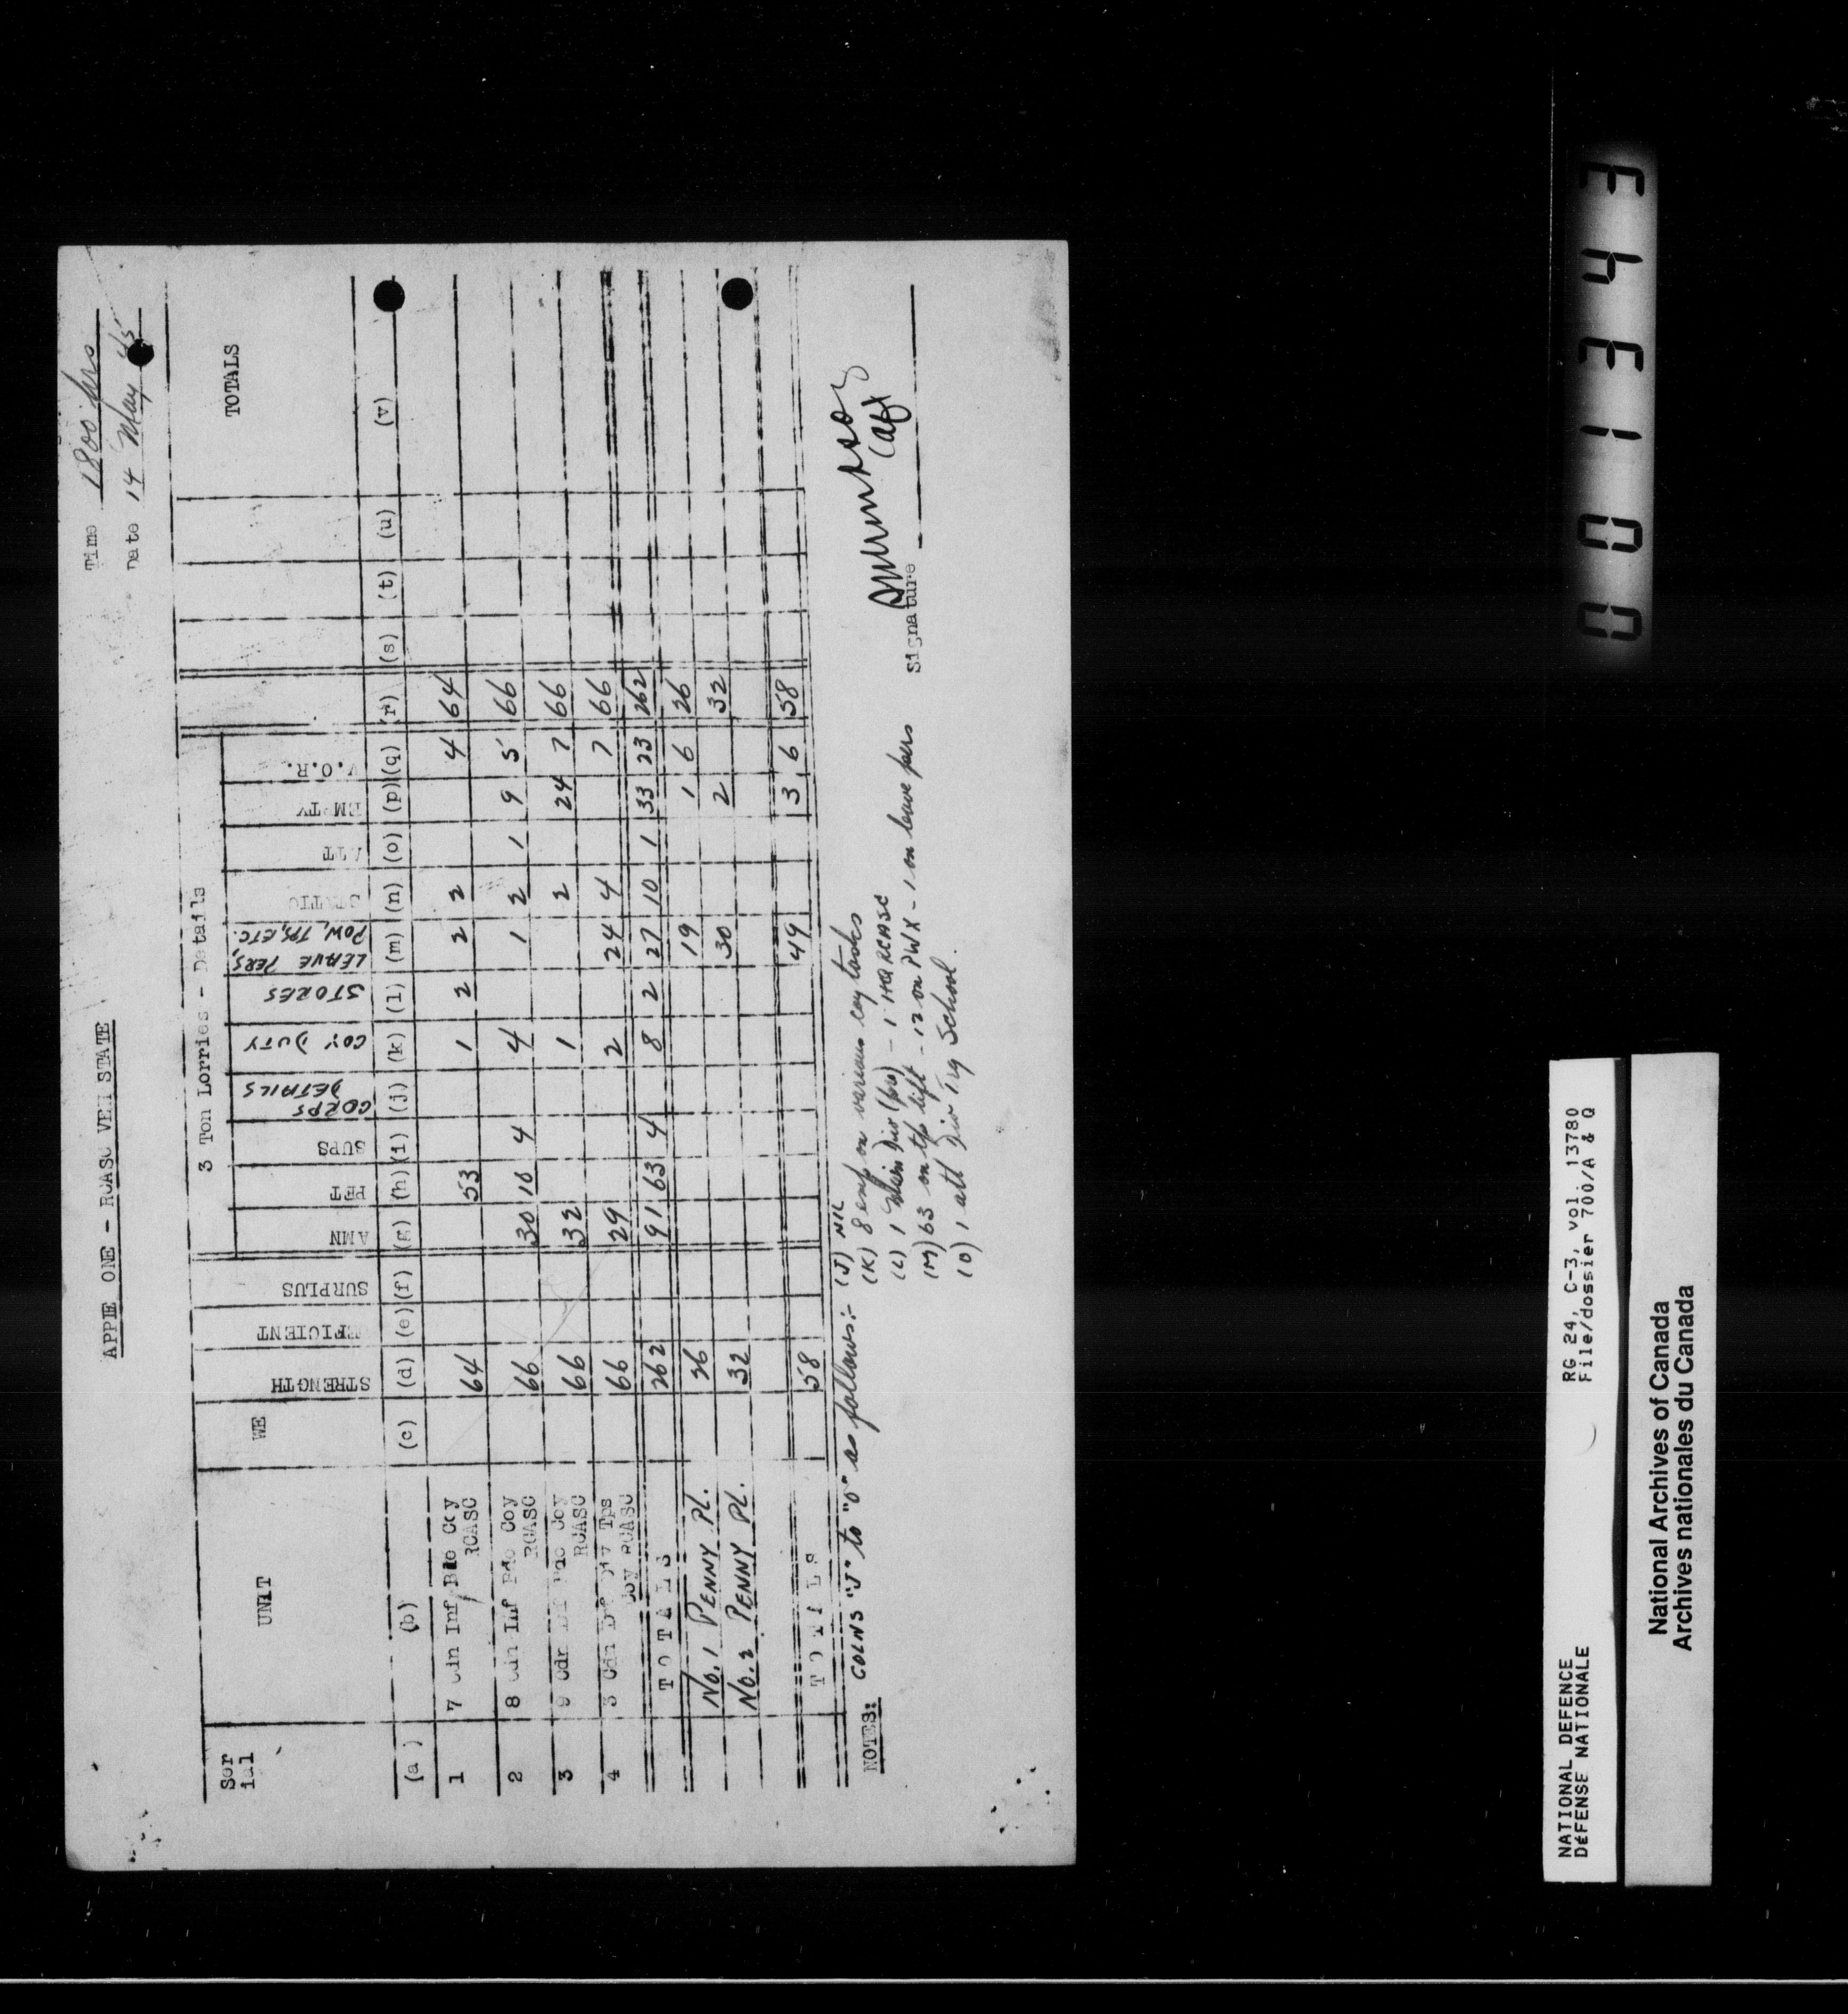 Time 1800 hrs
Date 14 May 45
APPIE ONE - RCASC VEH STATE
3 Ton Lorries - Details
Ser ial UNIT WE STRENGTH EFICIENT SURPLUS AMN PET SUPS CORPS DETAILS COY DUTY STORES LEAVE PERS, POW, TPS, ETC. STATIC ATT EMPTY V.O.R. TOTALS
(a) (b) (c) (d) (e) (f) (g) (h) (i) (j) (k) (l) (m) (n) (o) (p) (q) (r) (s) (t) (u) (v)
1 7 Cdn Inf Bde Coy RCASC 64 53 1 2 2 2 4 64
2 8 Cdn Inf Bde Coy RCASC 66 30 10 4 4 1 2 1 9 5 66
3 9 Cdn Inf Bde Coy RCASC 66 32 1 2 24 7 66
4 3 Cdn Inf Div Tps Coy RCASC 66 29 2 24 4 7 66
TOTALS 262 91 63 4 8 2 27 10 1 33 23 262
No. 1 PENNY PL. 26 19 1 6 26
No. 2 PENNY PL. 32 30 2 32
TOTALS 58 49 3 6 58
NOTES: COLNS "J" to "O" as follows:- (J) NIL
(K) 8 emp on various coy tasks
(L) 1 Main Div (pro) - 1 HQ RCASC
(M) 63 on tp lift - 12 on PWX - 1 on leave pers
(O) 1 att Div Trg School.
Signature
Capt
NATIONAL DEFENCE
DÉFENSE NATIONALE
RG 24, C-3, vol. 13780
File/dossier 700/A & Q
National Archives of Canada
Archives nationales du Canada
001343